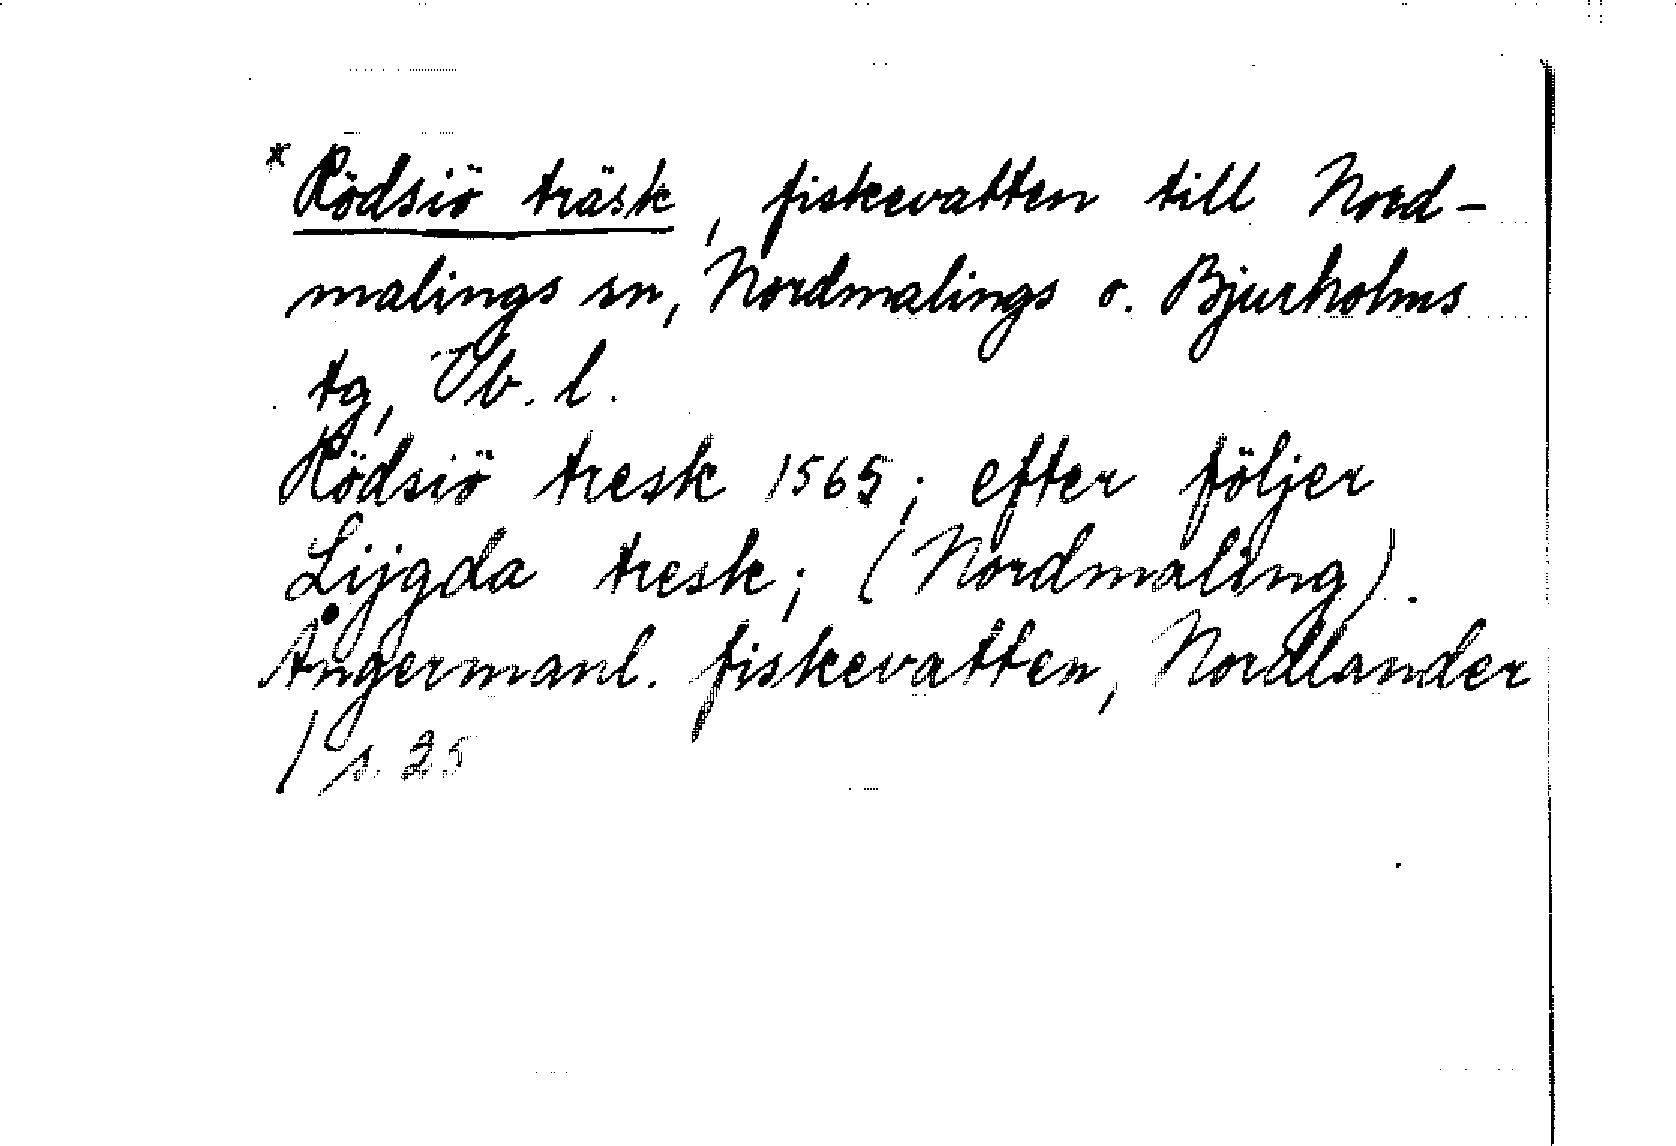 *Rödsiö träsk, fiskevatten till Nord-
malings sn, Nordmalings o. Bjurholms
tg, Vb. l.
Rödsiö tresk 1565; efter följer
Lijgda tresk; (Nordmaling).
Ångermanl. fiskevatten, Nordlander
/ s. 25